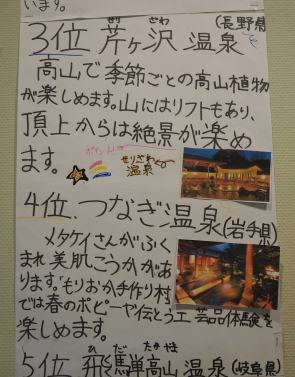 います。
(長野県
3位 芹ヶ沢 温泉
高山で季節ごとの高山植物
が楽しめます。山にはリフトもあり、
頂上からは絶景が楽め
ます。
せりざわ
温泉
4位.つなぎ温泉(岩手県)
メタケイさんがふく
まれ美肌こうかがあ
ります。もりおか手作り村
では春のポピーや伝とう工芸品体験を
楽しめます。
ひだたかやま
5位 飛騨高山温泉(岐阜県)